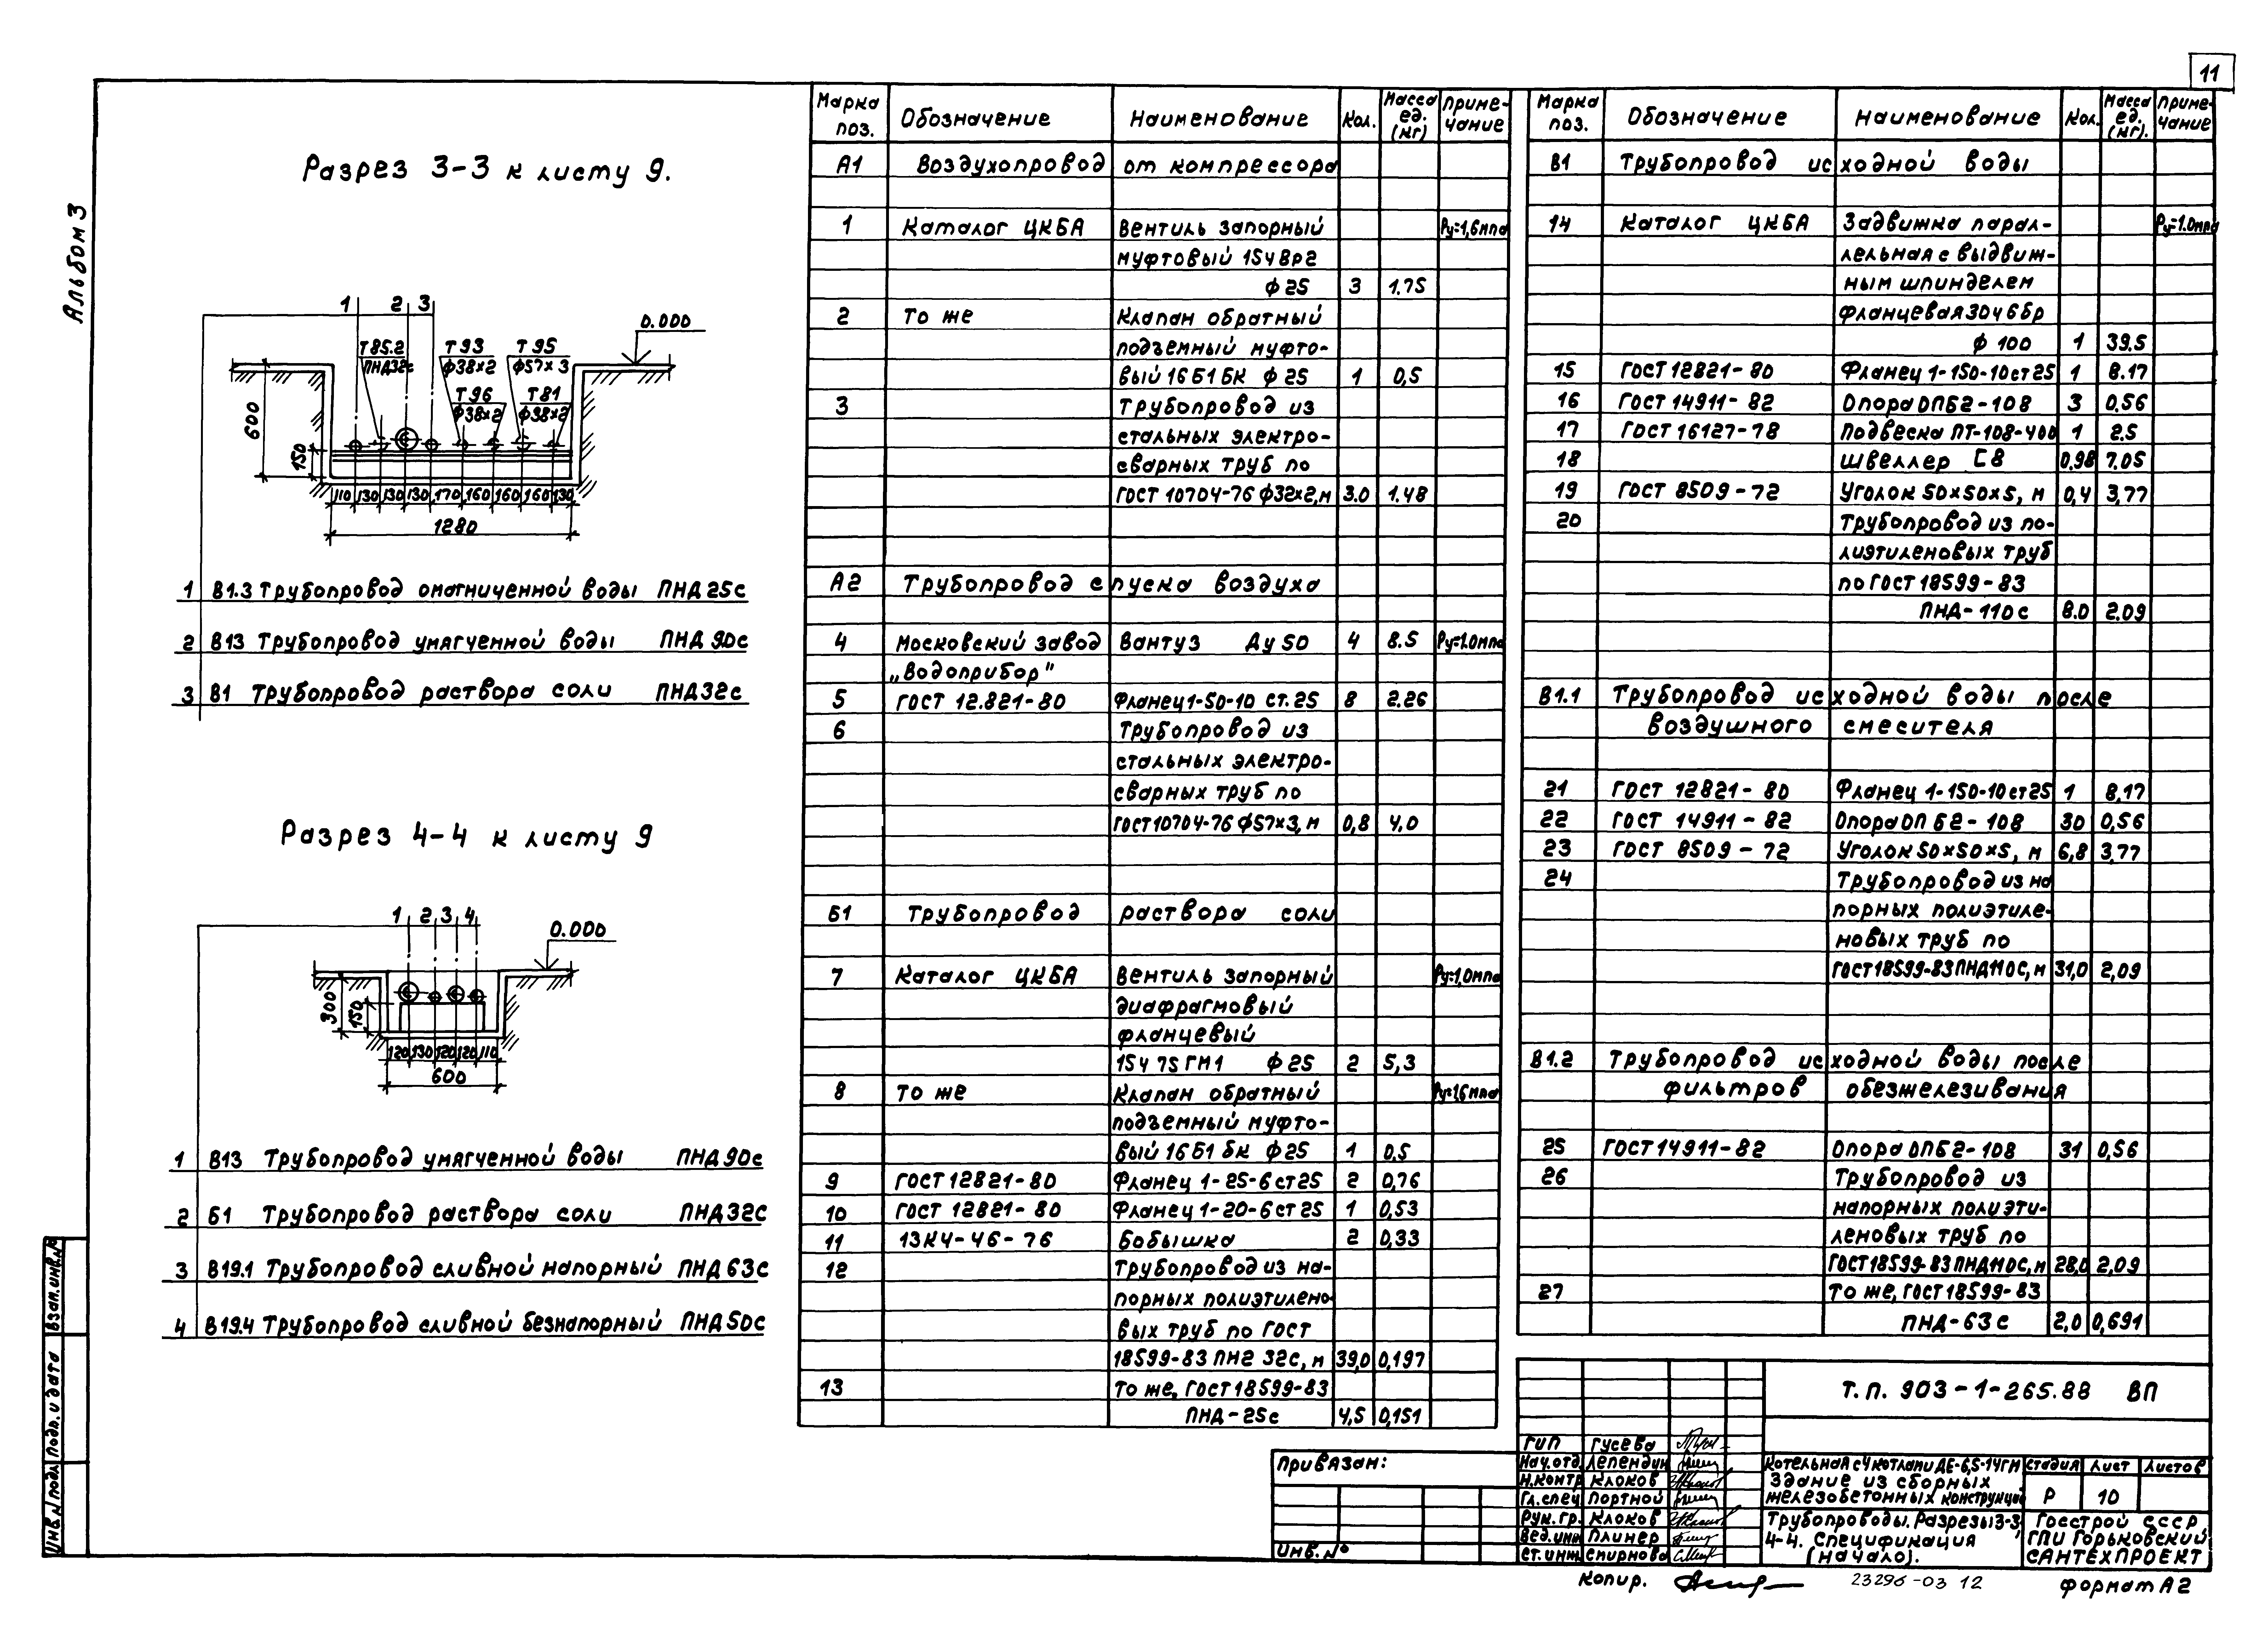 11
Альбом 3
Разрез 3-3 к листу 9.
1 2 3
0.000
Т85.2 Т93 Т95
ПНД32с ф38×2 ф57×3
Т96 Т81
ф38×2 ф38×2
600
150
110 130 130 130 170 160 160 160 130
1280
1 В1.3 Трубопровод омагниченной воды ПНД 25с
2 В13 Трубопровод умягченной воды ПНД 90с
3 В1 Трубопровод раствора соли ПНД32с
Разрез 4-4 к листу 9
1 2 3 4
0.000
300
150
120 130 120 120 110
600
1 В13 Трубопровод умягченной воды ПНД 90с
2 Б1 Трубопровод раствора соли ПНД32С
3 В19.1 Трубопровод сливной напорный ПНД 63с
4 В19.4 Трубопровод сливной безнапорный ПНД 50с
Марка поз. Обозначение Наименование Кол. Масса ед. (кг) Приме-чание
А1 Воздухопровод от компрессора
1 Каталог ЦКБА Вентиль запорный Ру=1,6мпа
муфтовый 15ч8р2
ф 25 3 1.75
2 То же Клапан обратный
подземный муфто-
вый 16Б1БК ф 25 1 0,5
3 Трубопровод из
стальных электро-
сварных труб по
ГОСТ 10704-76 ф32×2,м 3.0 1.48
А2 Трубопровод спуска воздуха
4 Московский завод Вантуз Ду 50 4 8.5 Ру=1.0мпа
„Водоприбор"
5 ГОСТ 12.821-80 Фланец 1-50-10 ст.25 8 2.26
6 Трубопровод из
стальных электро-
сварных труб по
ГОСТ10704-76 ф57×3,м 0,8 4,0
Б1 Трубопровод раствора соли
7 Каталог ЦКБА Вентиль запорный Ру=1,0мпа
диафрагмовый
фланцевый
15ч 75 ГМ1 ф 25 2 5,3
8 То же Клапан обратный Ру=1,6мпа
подземный муфто-
вый 16Б1 бк ф 25 1 0.5
9 ГОСТ 12821-80 Фланец 1-25-6 ст25 2 0,76
10 ГОСТ 12821-80 Фланец 1-20-6 ст 25 1 0,53
11 13К4-46-76 Бобышка 2 0,33
12 Трубопровод из на-
порных полиэтилено-
вых труб по ГОСТ
18599-83 ПН2 32С, м 39,0 0,197
13 То же, ГОСТ 18599-83
ПНД-25с 4,5 0,151
Марка поз. Обозначение Наименование Кол. Масса ед. (кг). Приме-чание
В1 Трубопровод исходной воды
14 Каталог ЦКБА Задвижка парал- Ру=1.0мпа
лельная с выдвиж-
ным шпинделем
фланцевая 30ч6бр
ф 100 1 39.5
15 ГОСТ 12821-80 Фланец 1-150-10 ст25 1 8.17
16 ГОСТ 14911-82 Опора ОПБ2-108 3 0,56
17 ГОСТ 16127-78 Подвеска ПТ-108-400 1 2.5
18 швеллер С8 0,98 7.05
19 ГОСТ 8509-72 Уголок 50×50×5, м 0,4 3,77
20 Трубопровод из по-
лиэтиленовых труб
по ГОСТ 18599-83
ПНД-110с 8.0 2.09
В1.1 Трубопровод исходной воды после
воздушного смесителя
21 ГОСТ 12821-80 Фланец 1-150-10 ст25 1 8,17
22 ГОСТ 14911-82 Опора ОП Б2-108 30 0,56
23 ГОСТ 8509-72 Уголок 50×50×5, м 6,8 3,77
24 Трубопровод из на
порных полиэтиле-
новых труб по
ГОСТ18599-83 ПНД110С, м 31,0 2,09
В1.2 Трубопровод исходной воды после
фильтров обезжелезивания
25 ГОСТ 14911-82 Опора ОПБ2-108 31 0,56
26 Трубопровод из
напорных полиэти-
леновых труб по
ГОСТ18599-83 ПНД110С, м 28,0 2,09
27 То же, ГОСТ 18599-83
ПНД-63с 2,0 0,691
Т.П. 903-1-265.88 ВП
Привязан:
Инв. №
ГИП Гусева
Нач.отд. Лепендин
Н.контр Клоков
Гл.спец Портной
Рук. гр. Клоков
Вед.инж Плинер
Ст.инж Смирнова
Котельная с 4 котлами ДЕ-6,5-14ГМ
Здание из сборных
железобетонных конструкций
Стадия Лист Листов
Р 10
Трубопроводы. Разрезы 3-3,
4-4. Спецификация
(начало).
Госстрой СССР
ГПИ Горьковский
САНТЕХПРОЕКТ
Копир.
23296-03 12
формат А2
Взам.инв.№
Подп. и дата
Инв.№ подл